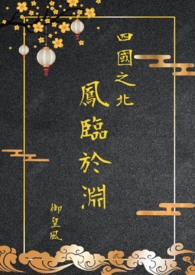 四國之北
鳳臨於淵
御皇風